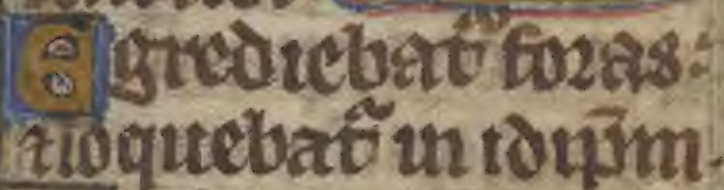 Egrediebat᷑ foras:
⁊ loquebat᷑ in idip̄m